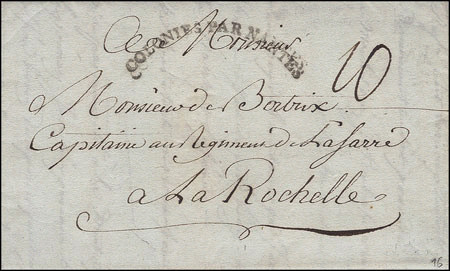 COLONIES PAR NANTES
A Monsieur
10
Monsieur de Bertrix
Capitaine au Régiment de La Sarre
a La Rochelle
96